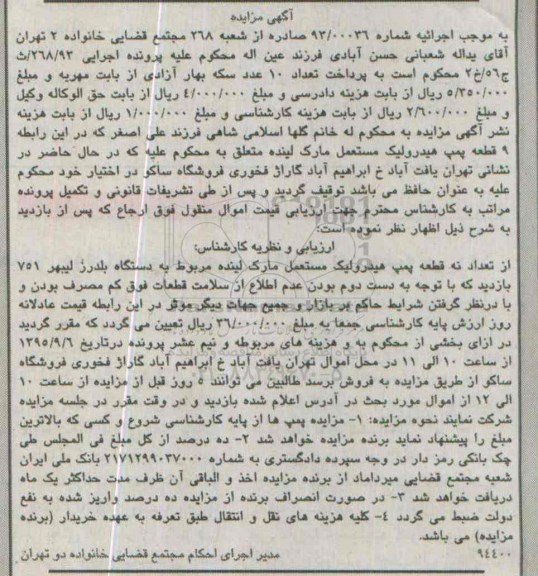 آگهی مزایده
به موجب اجرائیه شماره ۹۳/۰۰۰۳۶ صادره از شعبه ۲۶۸ مجتمع قضایی خانواده ۲ تهران
آقای یداله شعبانی حسن آبادی فرزند عین اله محکوم علیه پرونده اجرایی ۲۶۸/۹۳/ث
ج۵۶/خ۲ محکوم است به پرداخت تعداد ۱۰ عدد سکه بهار آزادی از بابت مهریه و مبلغ
۵/۳۵۰/۰۰۰ ریال از بابت هزینه دادرسی و مبلغ ۴/۰۰۰/۰۰۰ ریال از بابت حق الوکاله وکیل
و مبلغ ۲/۶۰۰/۰۰۰ ریال از بابت هزینه کارشناسی و مبلغ ۱/۰۰۰/۰۰۰ ریال از بابت هزینه
نشر آگهی مزایده به محکوم له خانم گلها اسلامی شاهی فرزند علی اصغر که در این رابطه
۹ قطعه پمپ هیدرولیک مستعمل مارک لینده متعلق به محکوم علیه که در حال حاضر در
نشانی تهران یافت آباد خ ابراهیم آباد گاراژ فخوری فروشگاه ساکو در اختیار خود محکوم
علیه به عنوان حافظ می باشد توقیف گردید و پس از طی تشریفات قانونی و تکمیل پرونده
مراتب به کارشناس محترم جهت ارزیابی قیمت اموال منقول فوق ارجاع که پس از بازدید
به شرح ذیل اظهار نظر نموده است:
ارزیابی و نظریه کارشناس:
از تعداد نه قطعه پمپ هیدرولیک مستعمل مارک لینده مربوط به دستگاه بلدرز لیبهر ۷۵۱
بازدید که با توجه به دست دوم بودن عدم اطلاع از سلامت قطعات فوق کم مصرف بودن و
با درنظر گرفتن شرایط حاکم بر بازار و جمیع جهات دیگر موثر در این رابطه قیمت عادلانه
روز ارزش پایه کارشناسی جمعا به مبلغ ۳۶/۰۰۰/۰۰۰ ریال تعیین می گردد که مقرر گردید
در ازای بخشی از محکوم به و هزینه های مربوطه و نیم عشر پرونده درتاریخ ۱۳۹۵/۹/۶
از ساعت ۱۰ الی ۱۱ در محل اموال تهران یافت آباد خ ابراهیم آباد گاراژ فخوری فروشگاه
ساکو از طریق مزایده به فروش برسد طالبین می توانند ۵ روز قبل از مزایده از ساعت ۱۰
الی ۱۲ از اموال مورد بحث در آدرس اعلام شده بازدید و در وقت مقرر در جلسه مزایده
شرکت نمایند نحوه مزایده: ۱- مزایده پمپ ها از پایه کارشناسی شروع و کسی که بالاترین
مبلغ را پیشنهاد نماید برنده مزایده خواهد شد ۲- ده درصد از کل مبلغ فی المجلس طی
چک بانکی رمز دار در وجه سپرده دادگستری به شماره ۲۱۷۱۲۹۹۰۳۷۰۰۰ بانک ملی ایران
شعبه مجتمع قضایی میرداماد از برنده مزایده اخذ و الباقی آن ظرف مدت حداکثر یک ماه
دریافت خواهد شد ۳- در صورت انصراف برنده از مزایده ده درصد واریز شده به نفع
دولت ضبط می گردد ۴- کلیه هزینه های نقل و انتقال طبق تعرفه به عهده خریدار (برنده
مزایده) می باشد.
۹۴۴۰۰ مدیر اجرای احکام مجتمع قضایی خانواده دو تهران